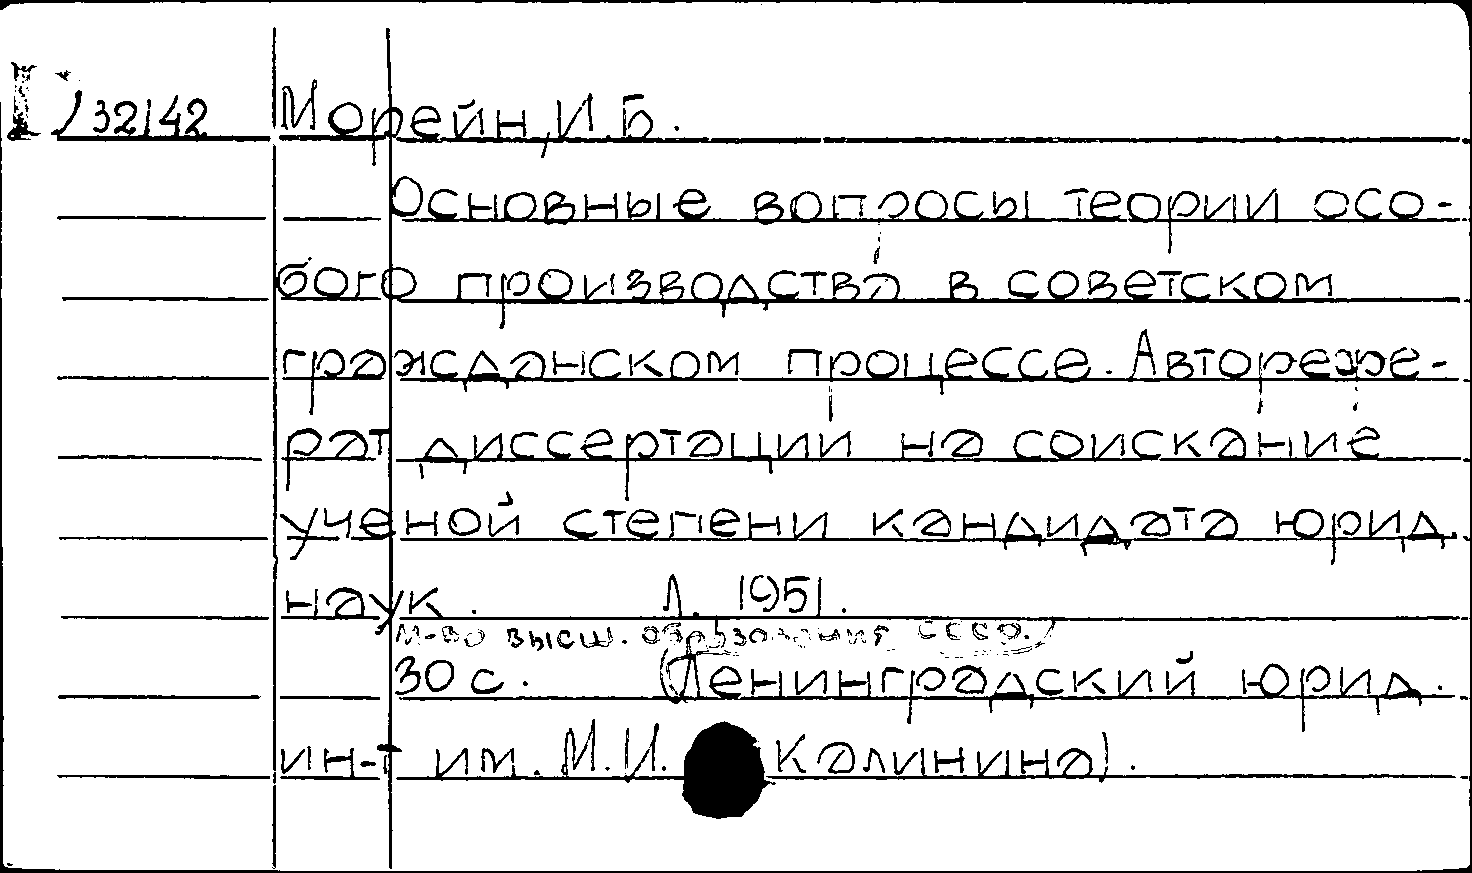 32142 Морейн, И.Б.
Основные вопросы теории осо-
бого производства в советском
гражданском процессе. Авторефе-
рат диссертации на соискание
ученой степени кандидата юрид.
наук. Л. 1951.
М-во высш. образования СССР.
30 с. (Ленинградский юрид.
ин-т им. М.И. Калинина).